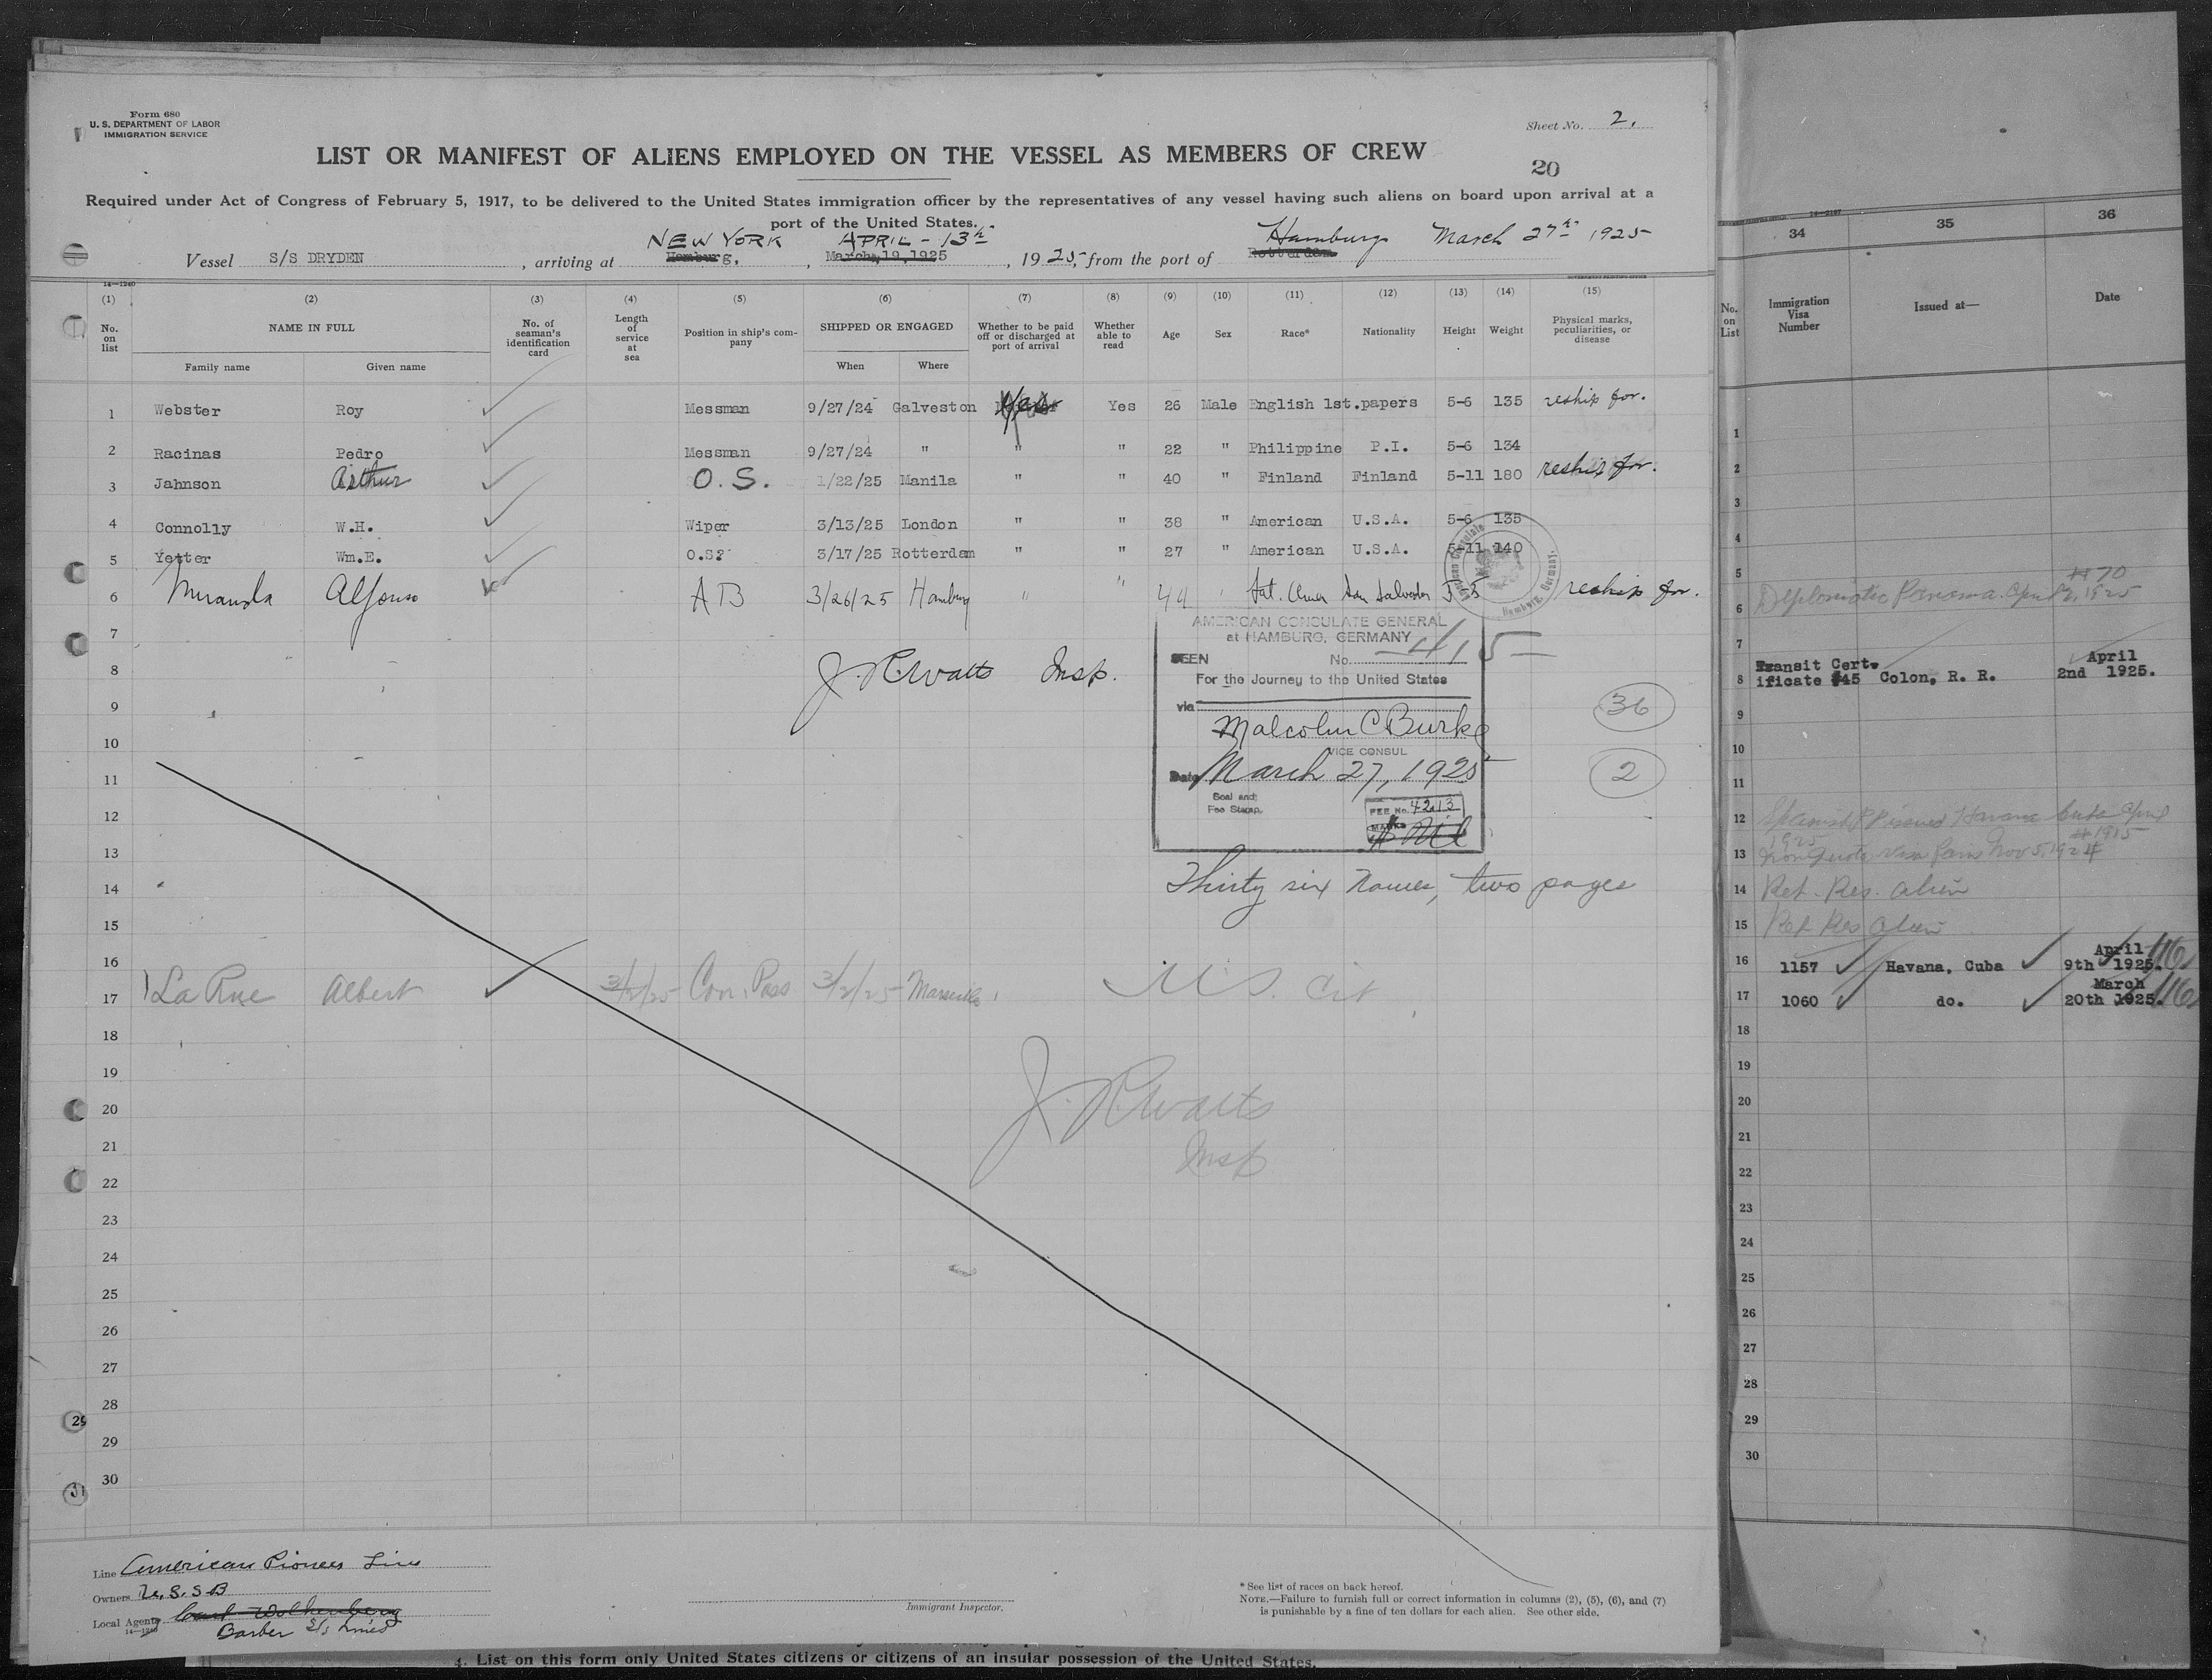 Form 680
U. S. DEPARTMENT OF LABOR
IMMIGRATION SERVICE
Sheet No. 2.
LIST OR MANIFEST OF ALIENS EMPLOYED ON THE VESSEL AS MEMBERS OF CREW
20
Required under Act of Congress of February 5, 1917, to be delivered to the United States immigration officer by the representatives of any vessel having such aliens on board upon arrival at a
port of the United States.
NEW YORK APRIL - 13th Hamburg March 27th 1925
Vessel S/S DRYDEN , arriving at Hamburg, , March,19,1925 , 1925, from the port of Rotterdam
14—1240
(1) (2) (3) (4) (5) (6) (7) (8) (9) (10) (11) (12) (13) (14) (15)
No. on list NAME IN FULL No. of seaman's identification card Length of service at sea Position in ship's company SHIPPED OR ENGAGED Whether to be paid off or discharged at port of arrival Whether able to read Age Sex Race* Nationality Height Weight Physical marks, peculiarities, or disease
Family name Given name When Where
1 Webster Roy Messman 9/27/24 Galveston Yes Yes 26 Male English 1st.papers 5-6 135 reship for.
2 Racinas Pedro Messman 9/27/24 " " " 22 " Philippine P.I. 5-6 134
3 Jahnson Arthur O.S. 1/22/25 Manila " " 40 " Finland Finland 5-11 180 reship for.
4 Connolly W.H. Wiper 3/13/25 London " " 38 " American U.S.A. 5-6 135
5 Yetter Wm.E. O.S? 3/17/25 Rotterdam " " 27 " American U.S.A. 5-11 140
6 Miranda Alfonso AB 3/26/25 Hamburg " " 44 " Lat. Amer San Salvador 5-5 reship for.
American Consulate Hamburg, Germany.
7
8 J. R. Watts Insp.
9
10
11
12
13
14
15
16
17 1 La Rue Albert 3/2/25 Con. Pass 3/2/25 Marseille U.S. Cit
18
19
20 J. R. Watts
21 Insp
22
23
24
25
26
27
28
29
30
AMERICAN CONSULATE GENERAL
at HAMBURG, GERMANY
SEEN No. 415
For the Journey to the United States
via
Malcolm C Burke
VICE CONSUL
Date March 27, 1925
Seal and
Fee Stamp.
FEE No. 4213
MARKS
Nil
36
2
Thirty six Names, two pages
29
31
Line American Pioneer Line
Owners U.S.S.B
Local Agents Carl Wolkenberg
14—1240
Barber S/S Lines
Immigrant Inspector.
* See list of races on back hereof.
NOTE.—Failure to furnish full or correct information in columns (2), (5), (6), and (7)
is punishable by a fine of ten dollars for each alien. See other side.
4. List on this form only United States citizens or citizens of an insular possession of the United States.
34 35 36
No. on List Immigration Visa Number Issued at— Date
1
2
3
4
5 #70
6 Diplomatic Panama. April 2, 1925
7
8 Transit Certificate #45 Colon, R. R. April 2nd 1925.
9
10
11
12 Spanish Havana Cuba April
1925 #1915
13 Non Quota Visa Nov 5, 1924
14 Ret. Res. Alien
15 Ret Res Alien
16 1157 Havana, Cuba April 9th 1925.
17 1060 do. March 20th 1925.
18
19
20
21
22
23
24
25
26
27
28
29
30